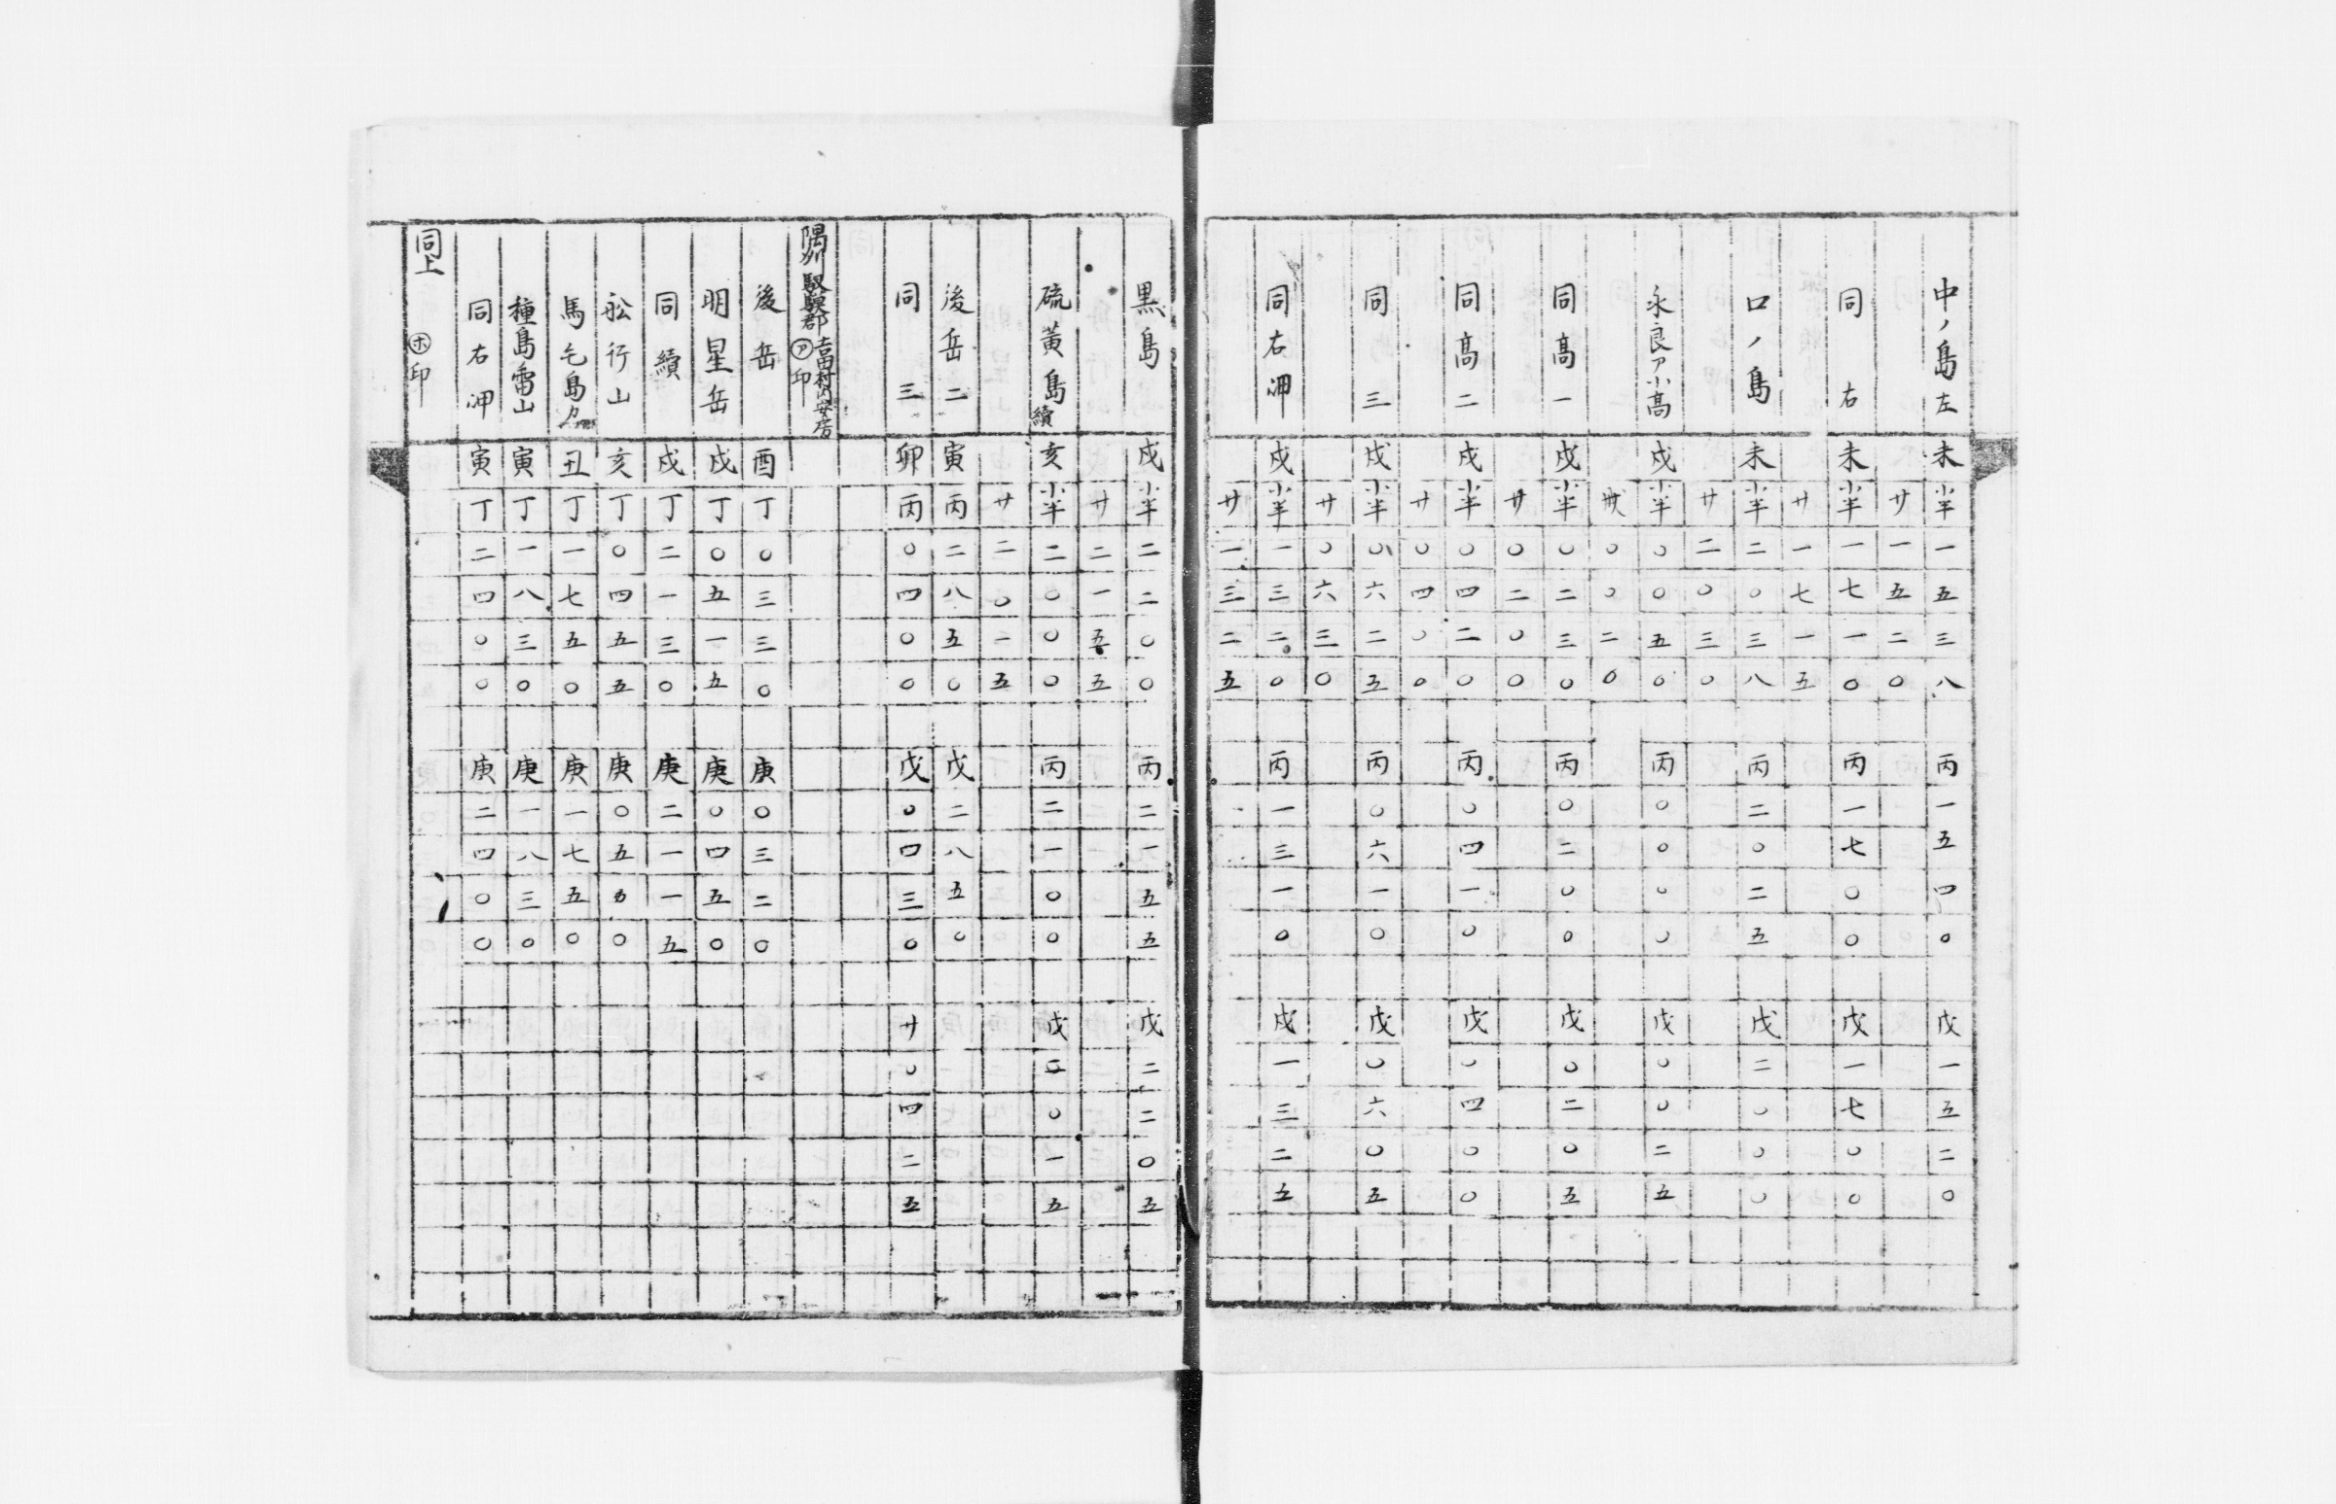 中ノ島左 未 小半 一 五 三 八 丙 一 五 四 〇 戊 一 五 二 〇
廿 一 五 二 〇
同右 未 小半 一 七 一 〇 丙 一 七 〇 〇 戊 一 七 〇 〇
廿 一 七 一 五
口ノ島 未 小半 二 〇 三 八 丙 二 〇 二 五 戊 二 〇 〇 〇
廿 二 〇 三 〇
永良ア小高 戌 小半 〇 〇 五 〇 丙 〇 〇 〇 〇 戊 〇 〇 二 五
〇 〇 二 〇
同高一 戌 小半 〇 二 三 〇 丙 〇 二 〇 〇 戊 〇 二 〇 五
廿 〇 二 〇 〇
同高二 戌 小半 〇 四 二 〇 丙 〇 四 一 〇 戊 〇 四 〇 〇
廿 〇 四 〇 〇
同三 戌 小半 〇 六 二 五 丙 〇 六 一 〇 戊 〇 六 〇 五
廿 〇 六 三 〇
同右岬 戌 小半 一 三 二 〇 丙 一 三 一 〇 戊 一 三 二 五
廿 一 三 二 五
黒島 戌 小半 二 二 〇 〇 丙 二 一 五 五 戊 二 二 〇 五
廿 二 一 五 五
硫黄島續 亥 小半 二 〇 〇 〇 丙 二 一 〇 〇 戊 二 〇 一 五
廿 二 〇 一 五
後岳二 寅 丙 二 八 五 〇 戊 二 八 五 〇
同三 卯 丙 〇 四 〇 〇 戊 〇 四 三 〇 廿 〇 四 二 五
隅州 馭謨郡 宮田村内安房 ㋐印
後岳 酉 丁 〇 三 三 〇 庚 〇 三 二 〇
明星岳 戌 丁 〇 五 一 五 庚 〇 四 五 〇
同續 戌 丁 二 一 三 〇 庚 二 一 一 五
舩行山 亥 丁 〇 四 五 五 庚 〇 五 〇
馬乞島 丑 丁 一 七 五 〇 庚 一 七 五 〇
種島雷山 寅 丁 一 八 三 〇 庚 一 八 三 〇
同右岬 寅 丁 二 四 〇 〇 庚 二 四 〇 〇
同上 ㋭印